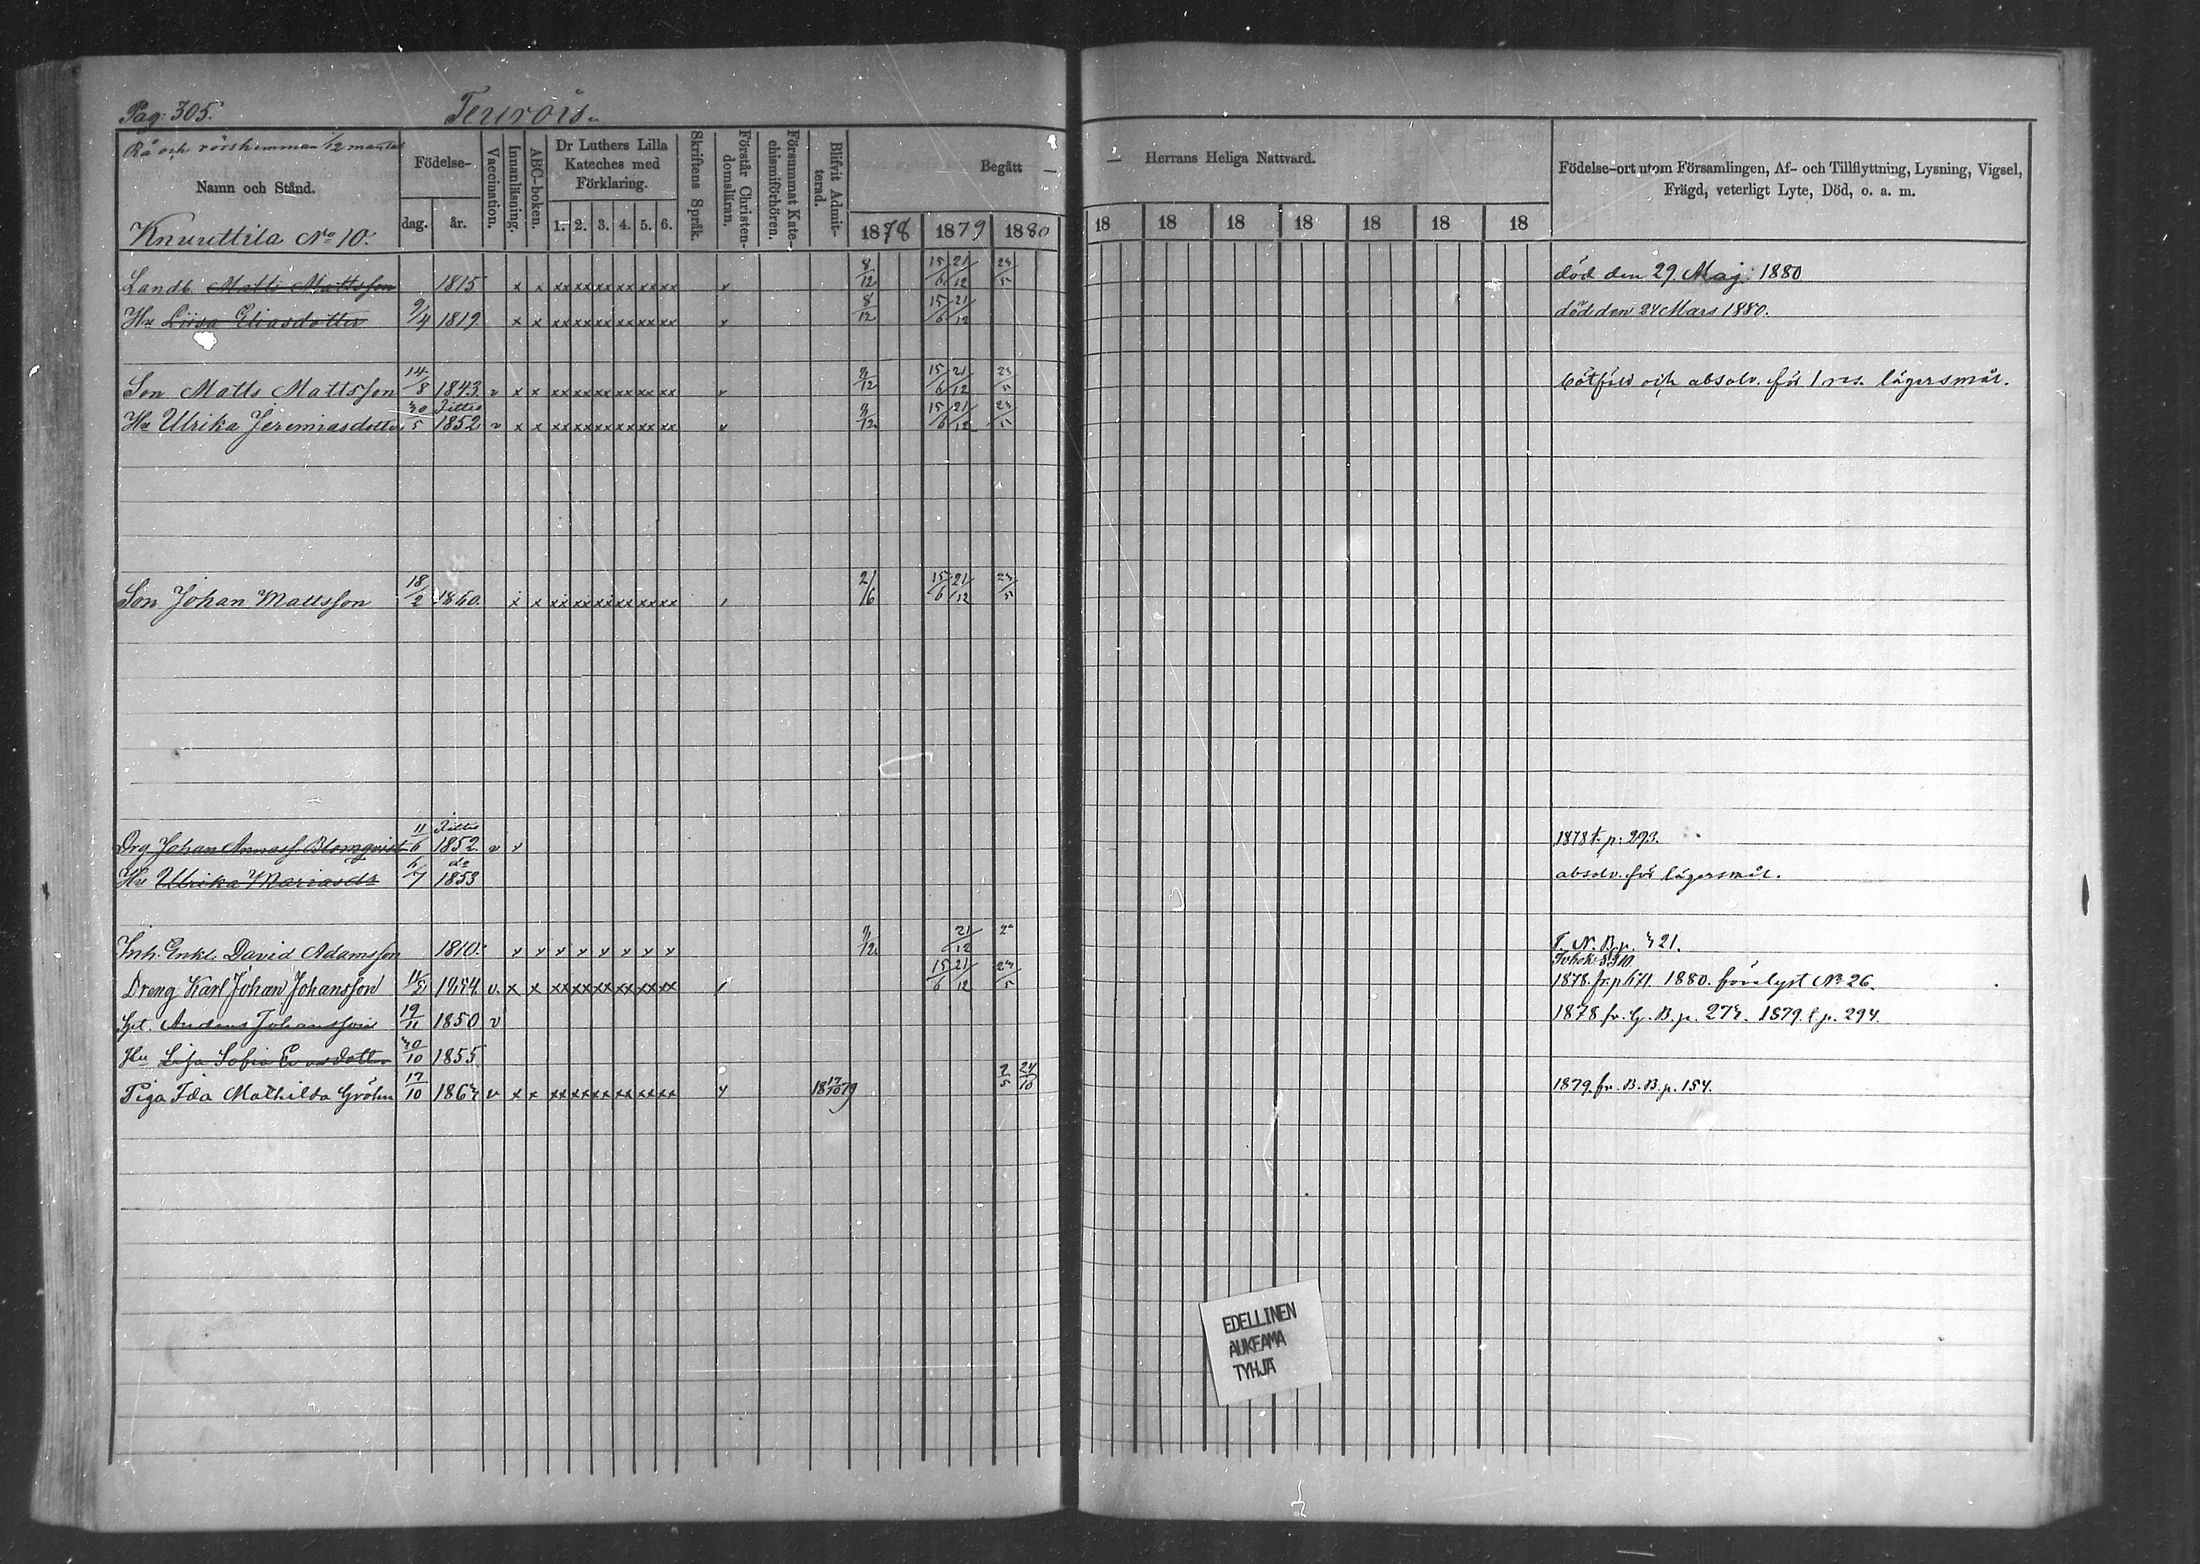 Pag: 305. Teurois.
Rå och rörshemman 1/12 mantal
Namn och Stånd. Födelse- dag. år. Vaccination. Innanläsning. ABC-boken. Dr Luthers Lilla Kateches med Förklaring. 1. 2. 3. 4. 5. 6. Skriftens Språk. Förstår Christendomsläran. Försummat Katechismiförhören. Blifvit Admitterad. Begått — 1878 1879 1880
— Herrans Heliga Nattvard. 18 18 18 18 18 18 18
Födelse-ort utom Församlingen, Af- och Tillflyttning, Lysning, Vigsel, Frägd, veterligt Lyte, Död, o. a. m.
Knuuttila No 10.
Landb. Matts Mattsson 1815 x x xx xx xx xx xx xx 8/12 15/6 21/12 23/5 död den 29 Maj: 1880
Hu Liisa Eliasdotter 9/4 1819 x x xx xx xx xx xx xx 8/12 15/6 21/12 död den 24 Mars 1880.
Son Matts Mattsson 14/8 1843 v x x xx xx xx xx xx xx v 8/12 15/6 21/12 23/5 bötfäld och absolv. för 1 res. lägersmål.
Hu Ulrika Jeremiasdotter 30/5 1852 v x x xx xx xx xx xx xx v 8/12 15/6 21/12 23/5
Son Johan Mattsson 18/2 x x xx xx xx xx xx xx 21/6 15/6 21/12 23/5
Drg Johan Blomqvist 11/6 1852 v v 1878 t. p: 293.
Hu Ulrika Mariasdr 6/7 do 1853 absolv. för lägersmål.
Inh. Enkl. David Adamsson 1810. x x x x x x x x 8/12 21/12
Dreng Karl Johan Johansson v. x x xx xx xx xx xx xx 15/6 21/12 23/5 1880. No 26.
Anders Johansson 19/11 1850 v 1878 fr. 1879 t p. 294.
Hu Sofia 30/10 1855
Piga Ida Mathilda Gröhn 17/10 v x x xx xx xx xx xx xx 18 17/10 79 2/5 24/10 1879 fr. B. B. p. 154.
EDELLINEN
AUKEAMA
TYHJÄ